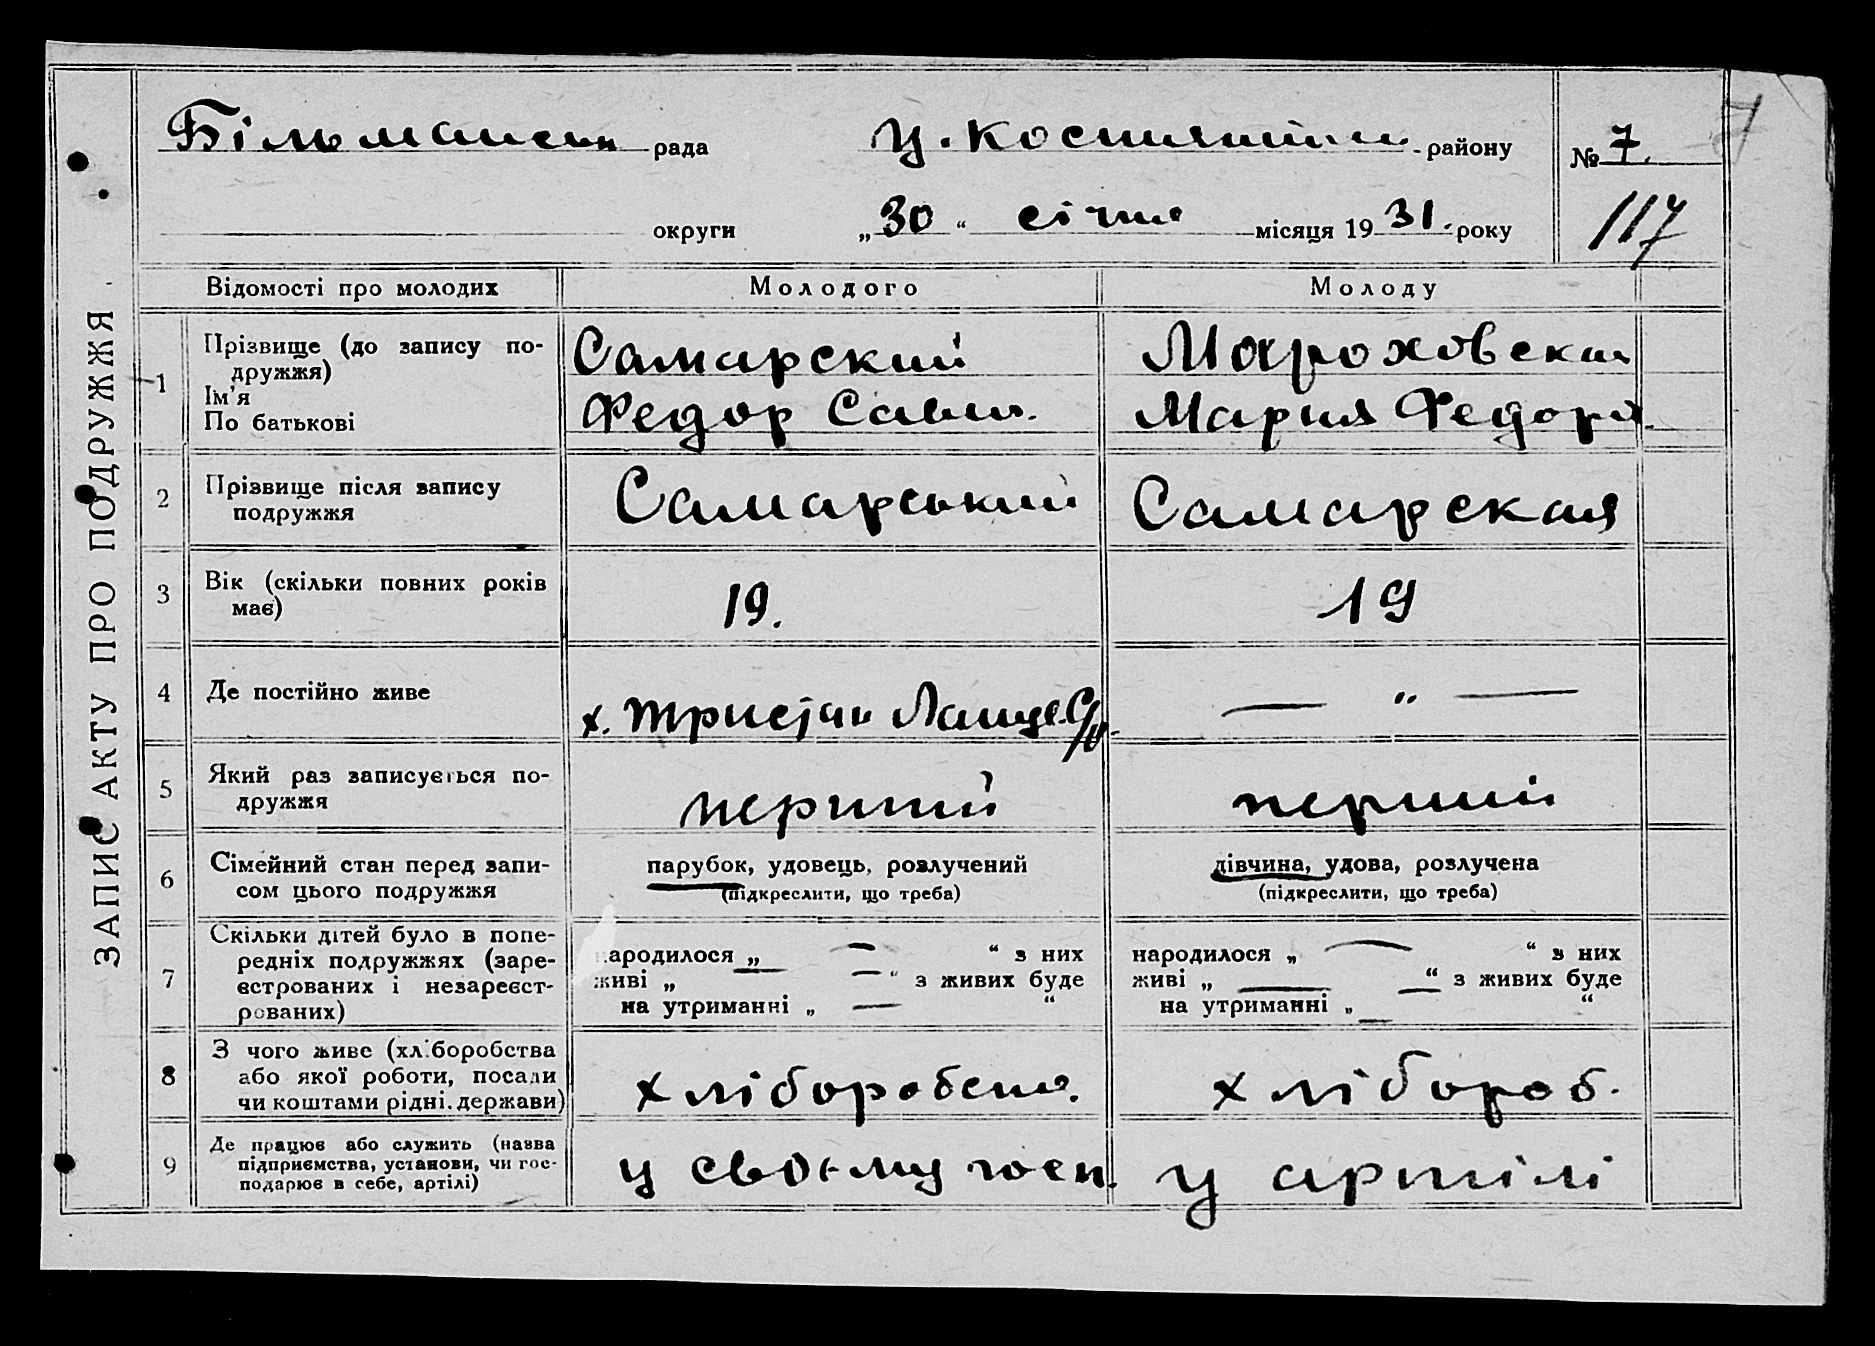 ЗАПИС АКТУ ПРО ПОДРУЖЖЯ
7
Більманська рада Ц. Костянтин. району № 7.
округи „30“ січня місяця 1931. року 117
Відомості про молодих Молодого Молоду
1 Прізвище (до запису по-
дружжя)
Ім'я
По батькові
Самарский
Федор Савш.
Мароховская
Мария Федоро.
2 Прізвище після запису
подружжя
Самарський Самарская
3 Вік (скільки повних років
має)
19. 19
4 Де постійно живе
х. — „ —
5 Який раз записується по-
дружжя
перший перший
6 Сімейний стан перед запи-
сом цього подружжя
парубок, удовець, розлучений
(підкреслити, що треба)
дівчина, удова, розлучена
(підкреслити, що треба)
7 Скільки дітей було в попе-
редніх подружжях (заре-
єстрованих і незареєст-
рованих)
народилося „ — “ з них
живі „ — “ з живих буде
на утриманні „ — “
народилося „ — “ з них
живі „ — “ з живих буде
на утриманні „ — “
8 З чого живе (хліборобства
або якої роботи, посади
чи коштами рідні, держави)
хліборобств. хлібороб.
9 Де працює або служить (назва
підприємства, установи, чи гос-
подарює в себе, артілі)
у своєму госп. у артілі